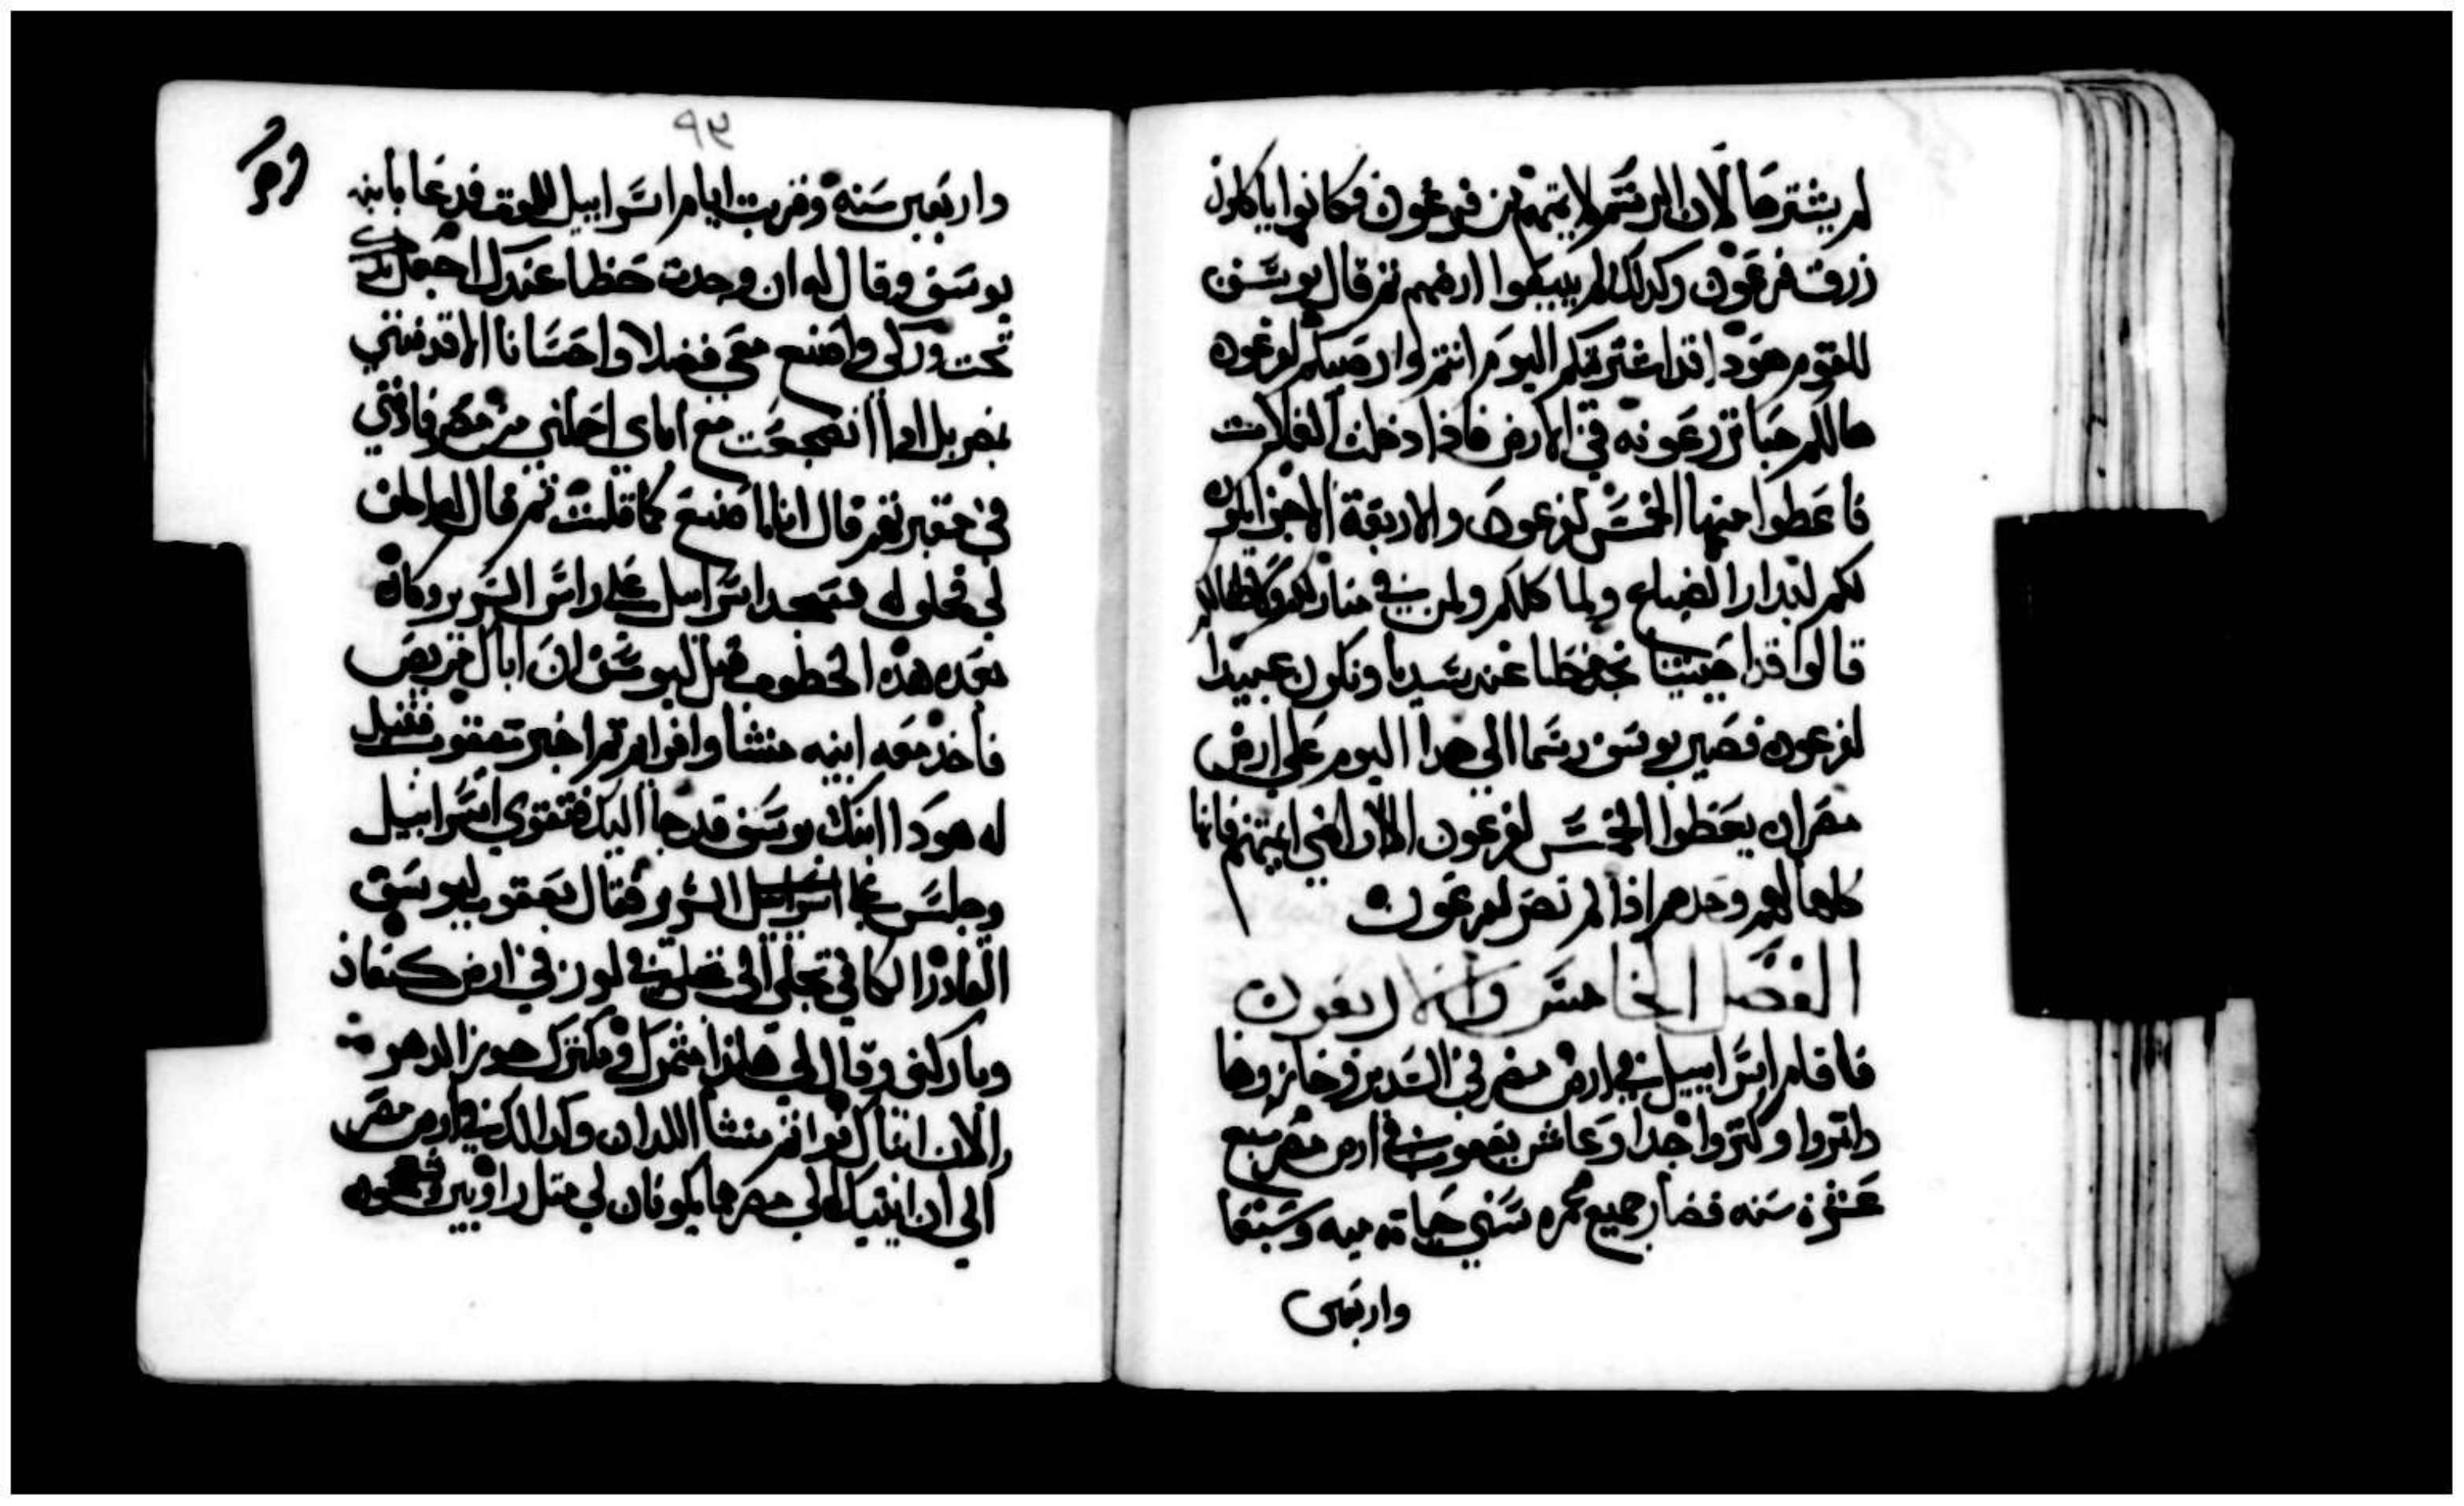 لم يشترها لان الرسم لايمتهم من فرعون فكانوا ياكلون
رزق فرعون وكدلك لم يبيعوا ارضهم ثم قال يوسف
للقوم هودا قد اشتريتكم اليوم انتم وارضيكم لفرعون
هاللم حبا تزرعونه في الارض فاذا دخلت الغلات
فاعطوا منها الخمس لفرعون والاربعة الاجزا يكون
لكم لبدار الضياع ولماكلكم ولمن في منازلكم
قالوا قد احييتنا نجد حظا عند سيدنا ونكون عبيدا
لفرعون فصير يوسف رسما الي هدا اليوم علي ارض
مصر ان يعطوا الخمس لفرعون الا ارضي ايمتهم فانها
كلها لهم وحدهم اذا لم تصر لفرعون
الفصل الخامس والاربعون
فاقام اسراييل في ارض مصر في السدير وحازوها
واتمروا وكتروا جدا وعاش يعقوب في ارض مصر سبع
عشرة سنه فصار جميع عمره سني حياته ميه وسبعا
واربعين
٩٤
واربعين سنه وقربت ايام اسراييل للموت فدعا بابنه
يوسف وقال له ان وجدت حظا عندك اجعل يدك
تحت وركي واصنع معي فضلا واحسانا الا تدفنني
بمصر بل اذا انضجعت مع اباي احملني من مصر وادفني
في مقبرتهم قال انا اصنع كما قلت ثم قال له احلف
لي فحلف له فسجد اسراييل علي راس السرير وكان
بعد هذه الخطوب قيل ليوسف ان اباك مريض
فاخذ معه ابنيه منشا وافرايم ثم اخبر يعقوب فقيل
له هودا ابنك يوسف قد جا اليك فتقوي اسراييل
وجلس علي السرير فقال يعقوب ليوسف
القادر الكافي تجلي الي في لوز في ارض كنعان
وباركني وقال لي هانذا مثمرك ومكترك
والان ابناك افرايم منشا اللدان ولدا لك في ارض مصر
الي ان اتيتك الي مصر هما يكونان لي متل راوبين وشمعون